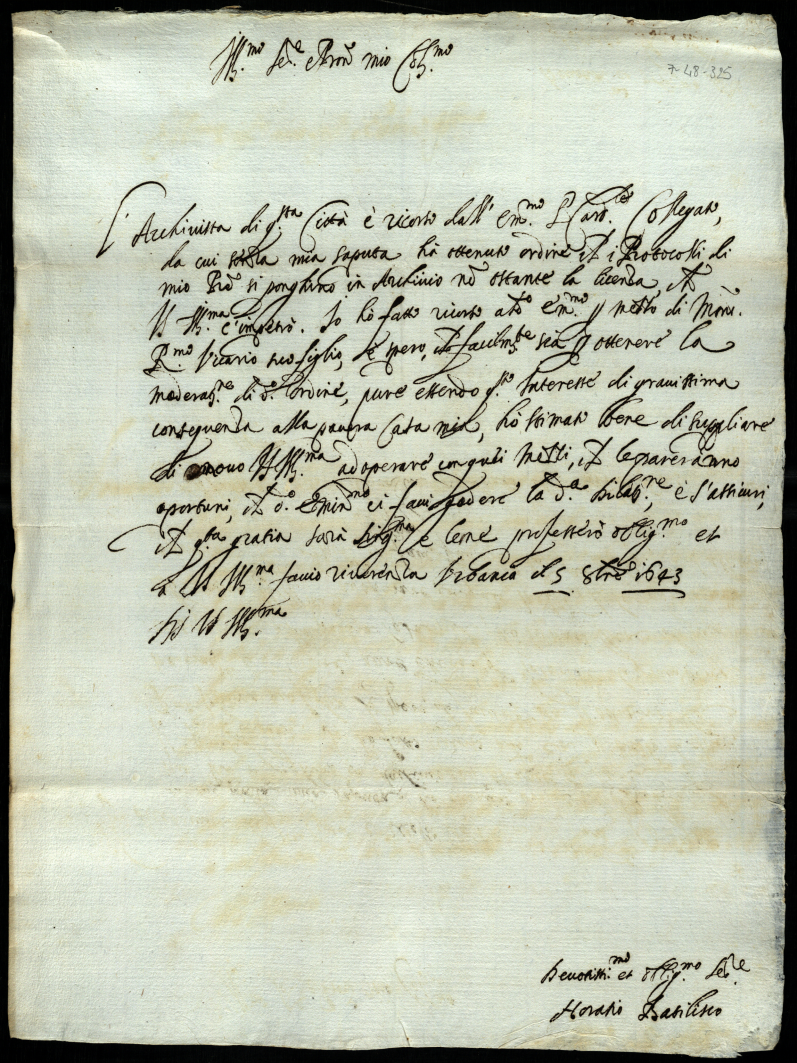 Ill.mo Sig.re e Pron mio Col.mo
7-48-325
L'Archivista di q.sta Città è ricorso dall' Em.mo S.r Card.le Collegato,
da cui senza mia saputa hà ottenuto ordine ch' i Protocolli di
mio Pre si ponghino in Archivio nõ ostante la licenza, ch'
V.S. Ill.ma c'impetrò. Io hò fatto ricorso a d.o Em.mo p mezzo di Mons.
R.mo Vicario suo figlio, e spero, ch' facilm.te sia p ottenere la
moderaz.ne di d.o ordine, pure essendo q.sto Interesse di gravissima
conseguenza alla povera Casa mia, hò stimato bene di supplicare
di nuovo V.S. Ill.ma ad operare con quei mezzi, ch' le pareranno
oportuni, ch' d.o Emin.mo ci facci godere la d.a, e s'assicuri,
ch' q.sta gratia sarà sing.ma e le ne professerò oblig.mo et
a V.S. Ill.ma faccio riverenza Urbania il 5 8bre 1643
Di V.S. Ill.ma
Devotiss.mo et oblig.mo Se.re
Horatio Basilisco